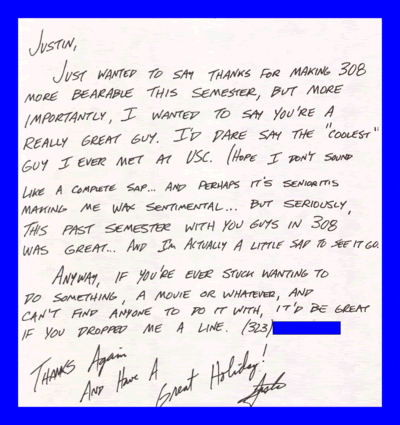 JUSTIN,
JUST WANTED TO SAY THANKS FOR MAKING 308
MORE BEARABLE THIS SEMESTER, BUT MORE
IMPORTANTLY, I WANTED TO SAY YOU'RE A
REALLY GREAT GUY. I'D DARE SAY THE "COOLEST"
GUY I EVER MET AT USC. (HOPE I DON'T SOUND
LIKE A COMPLETE SAP... AND PERHAPS IT'S SENIORITIS
MAKING ME WAX SENTIMENTAL... BUT SERIOUSLY,
THIS PAST SEMESTER WITH YOU GUYS IN 308
WAS GREAT... AND I'M ACTUALLY A LITTLE SAD TO SEE IT GO.
ANYWAY, IF YOU'RE EVER STUCK WANTING TO
DO SOMETHING, A MOVIE OR WHATEVER, AND
CAN'T FIND ANYONE TO DO IT WITH, IT'D BE GREAT
IF YOU DROPPED ME A LINE. (323)
THANKS AGAIN
AND HAVE A
GREAT HOLIDAY!